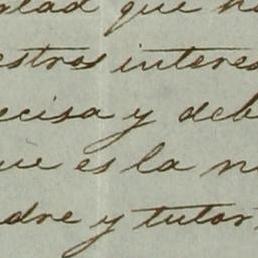 alad que h
estros interes
ecisa y deb
ue es la n
adre y tutor